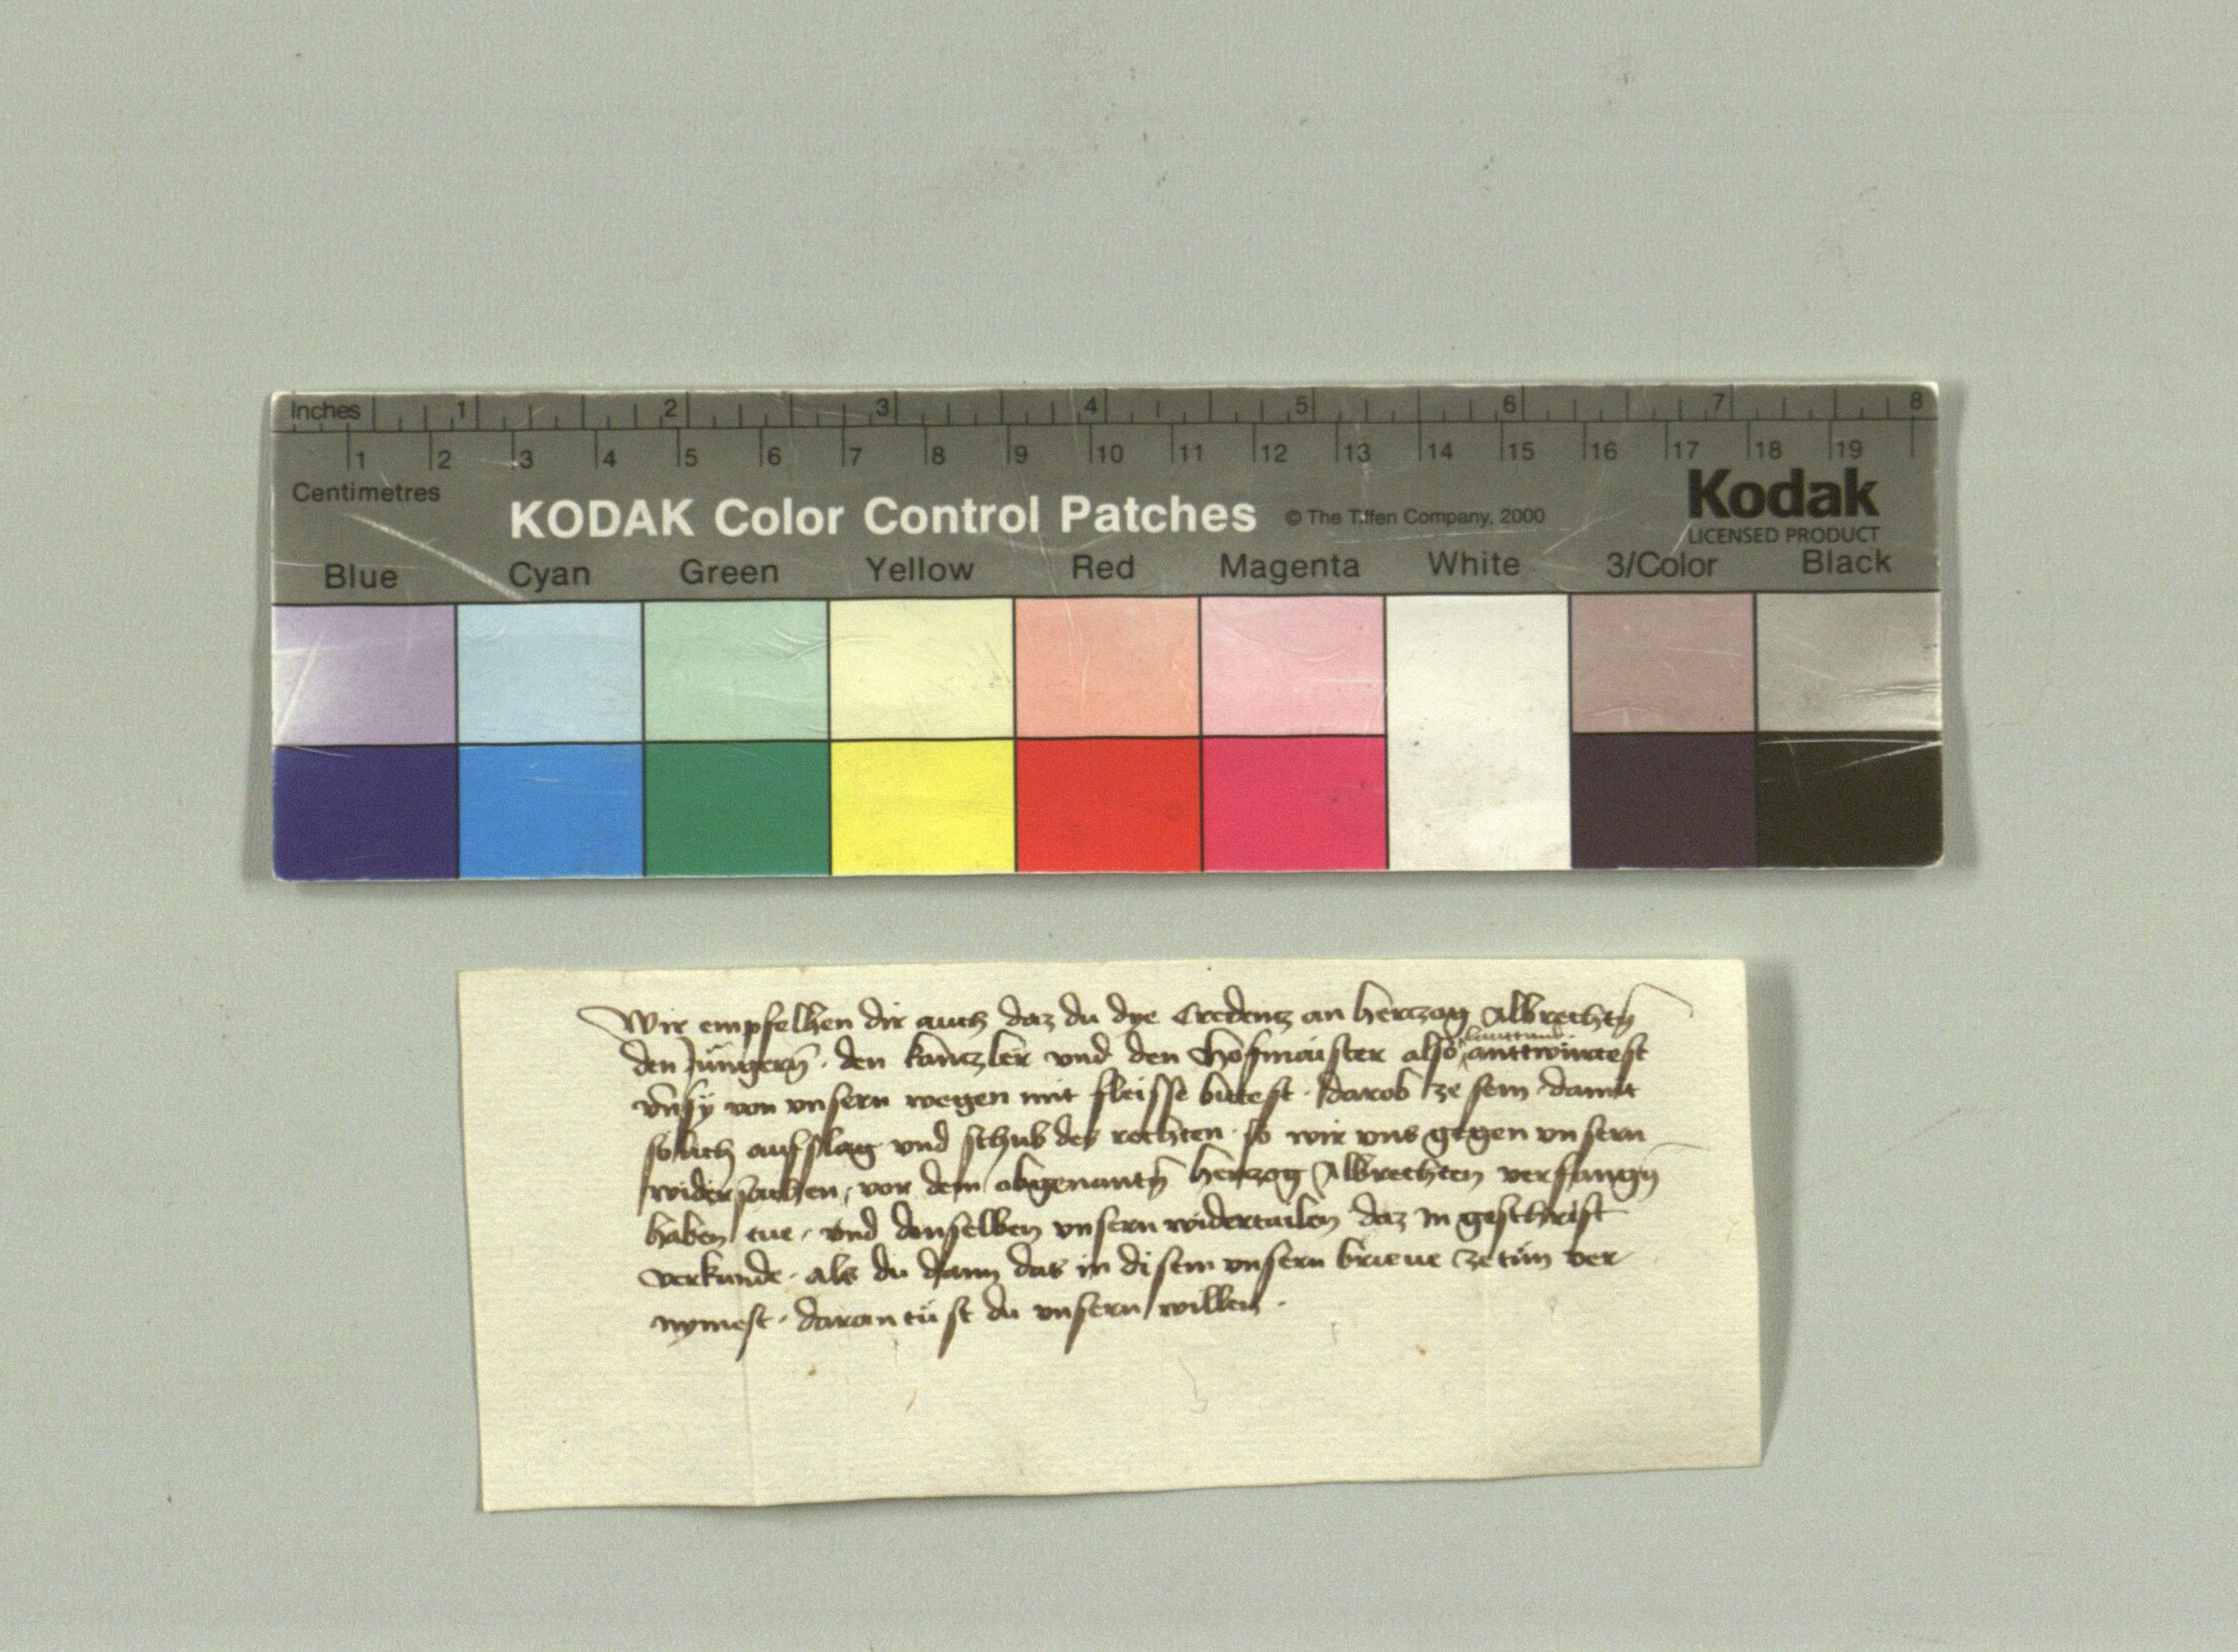 Inches 1 2 3 4 5 6 7 8
1 2 3 4 5 6 7 8 9 10 11 12 13 14 15 16 17 18 19
Centimetres
KODAK Color Control Patches © The Tiffen Company, 2000 Kodak
LICENSED PRODUCT
Blue Cyan Green Yellow Red Magenta White 3/Color Black
Wir empfelhen dir auch daz du dye Credentz an hertzog Albrechtn̄
den Jüngern̄ · den kanczler vnd den Hofmaister also anttwürtest
vn̄ sy von vnsern wegen mit fleisse bittest · darob ze sein damit
sölich aufslag vnd schub des rechten so wir vns gegen vnsern
widersachen, vor dem obgenantn̄ hertzog Albrechten verfangn̄
haben tue, vnd denselben vnsern widertailen daz In geschrift
verkunde · als du dann das in disem vnsern brieue ze tün ver
nymest · daran tüst du vnsern willen ·